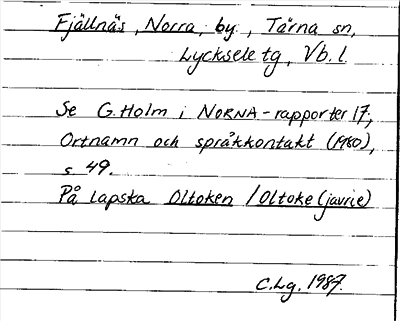 Fjällnäs, Norra, by, Tärna sn,
Lycksele tg, Vb. l.
Se G. Holm i NORNA-rapporter 17,
Ortnamn och språkkontakt (1980),
s. 49.
På lapska Oltoken / Oltoke (javrie)
C.Lg. 1987.